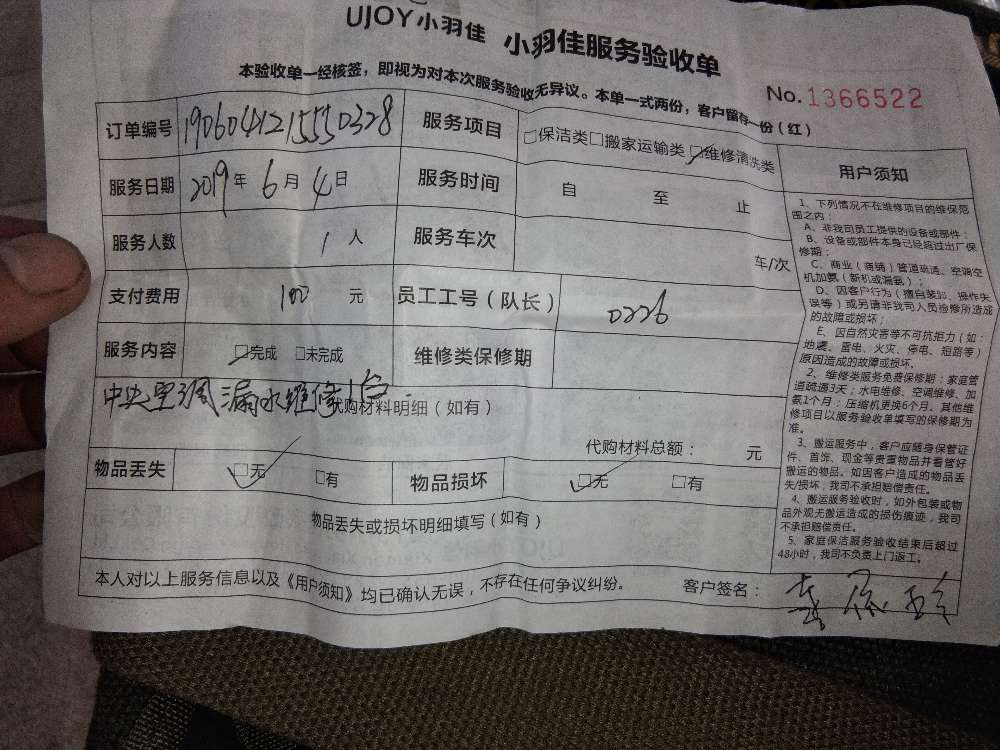 UJOY小羽佳 小羽佳服务验收单
本验收单一经核签，即视为对本次服务验收无异议。本单一式两份，客户留存一份（红）
No. 1366522
订单编号 190604121555 0328 服务项目 □保洁类□搬家运输类☑维修清洗类
服务日期 2019年6月4日 服务时间 自 至 止
服务人数 1人 服务车次 车/次
支付费用 100元 员工工号（队长） 0226
服务内容 ☑完成 □未完成 维修类保修期
中央空调漏水维修1台
代购材料明细（如有）
代购材料总额： 元
物品丢失 ☑无 □有 物品损坏 ☑无 □有
物品丢失或损坏明细填写（如有）
本人对以上服务信息以及《用户须知》均已确认无误，不存在任何争议纠纷。 客户签名：
用户须知
1、下列情况不在维修项目的维保范
围之内：
A、非我司员工提供的设备或部件；
B、设备或部件本身已经超过出厂保
修期；
C、商业（商铺）管道疏通、空调空
机加氨（新机或漏氨）；
D、因客户行为（擅自装卸、操作失
误等）或另请非我司人员检修所造成
的故障或损坏；
E、因自然灾害等不可抗拒力（如：
地震、雷电、火灾、停电、短路等）
原因造成的故障或损坏。
2、维修类服务免费保修期：家庭管
道疏通3天；水电维修、空调维修、加
氨1个月；压缩机更换6个月。其他维
修项目以服务验收单填写的保修期为
准。
3、搬运服务中，客户应随身保管证
件、首饰、现金等贵重物品并看管好
搬运的物品。如因客户造成的物品丢
失/损坏，我司不承担赔偿责任。
4、搬运服务验收时，如外包装或物
品外观无搬运造成的损伤痕迹，我司
不承担赔偿责任。
5、家庭保洁服务验收结束后超过
48小时，我司不负责上门返工。